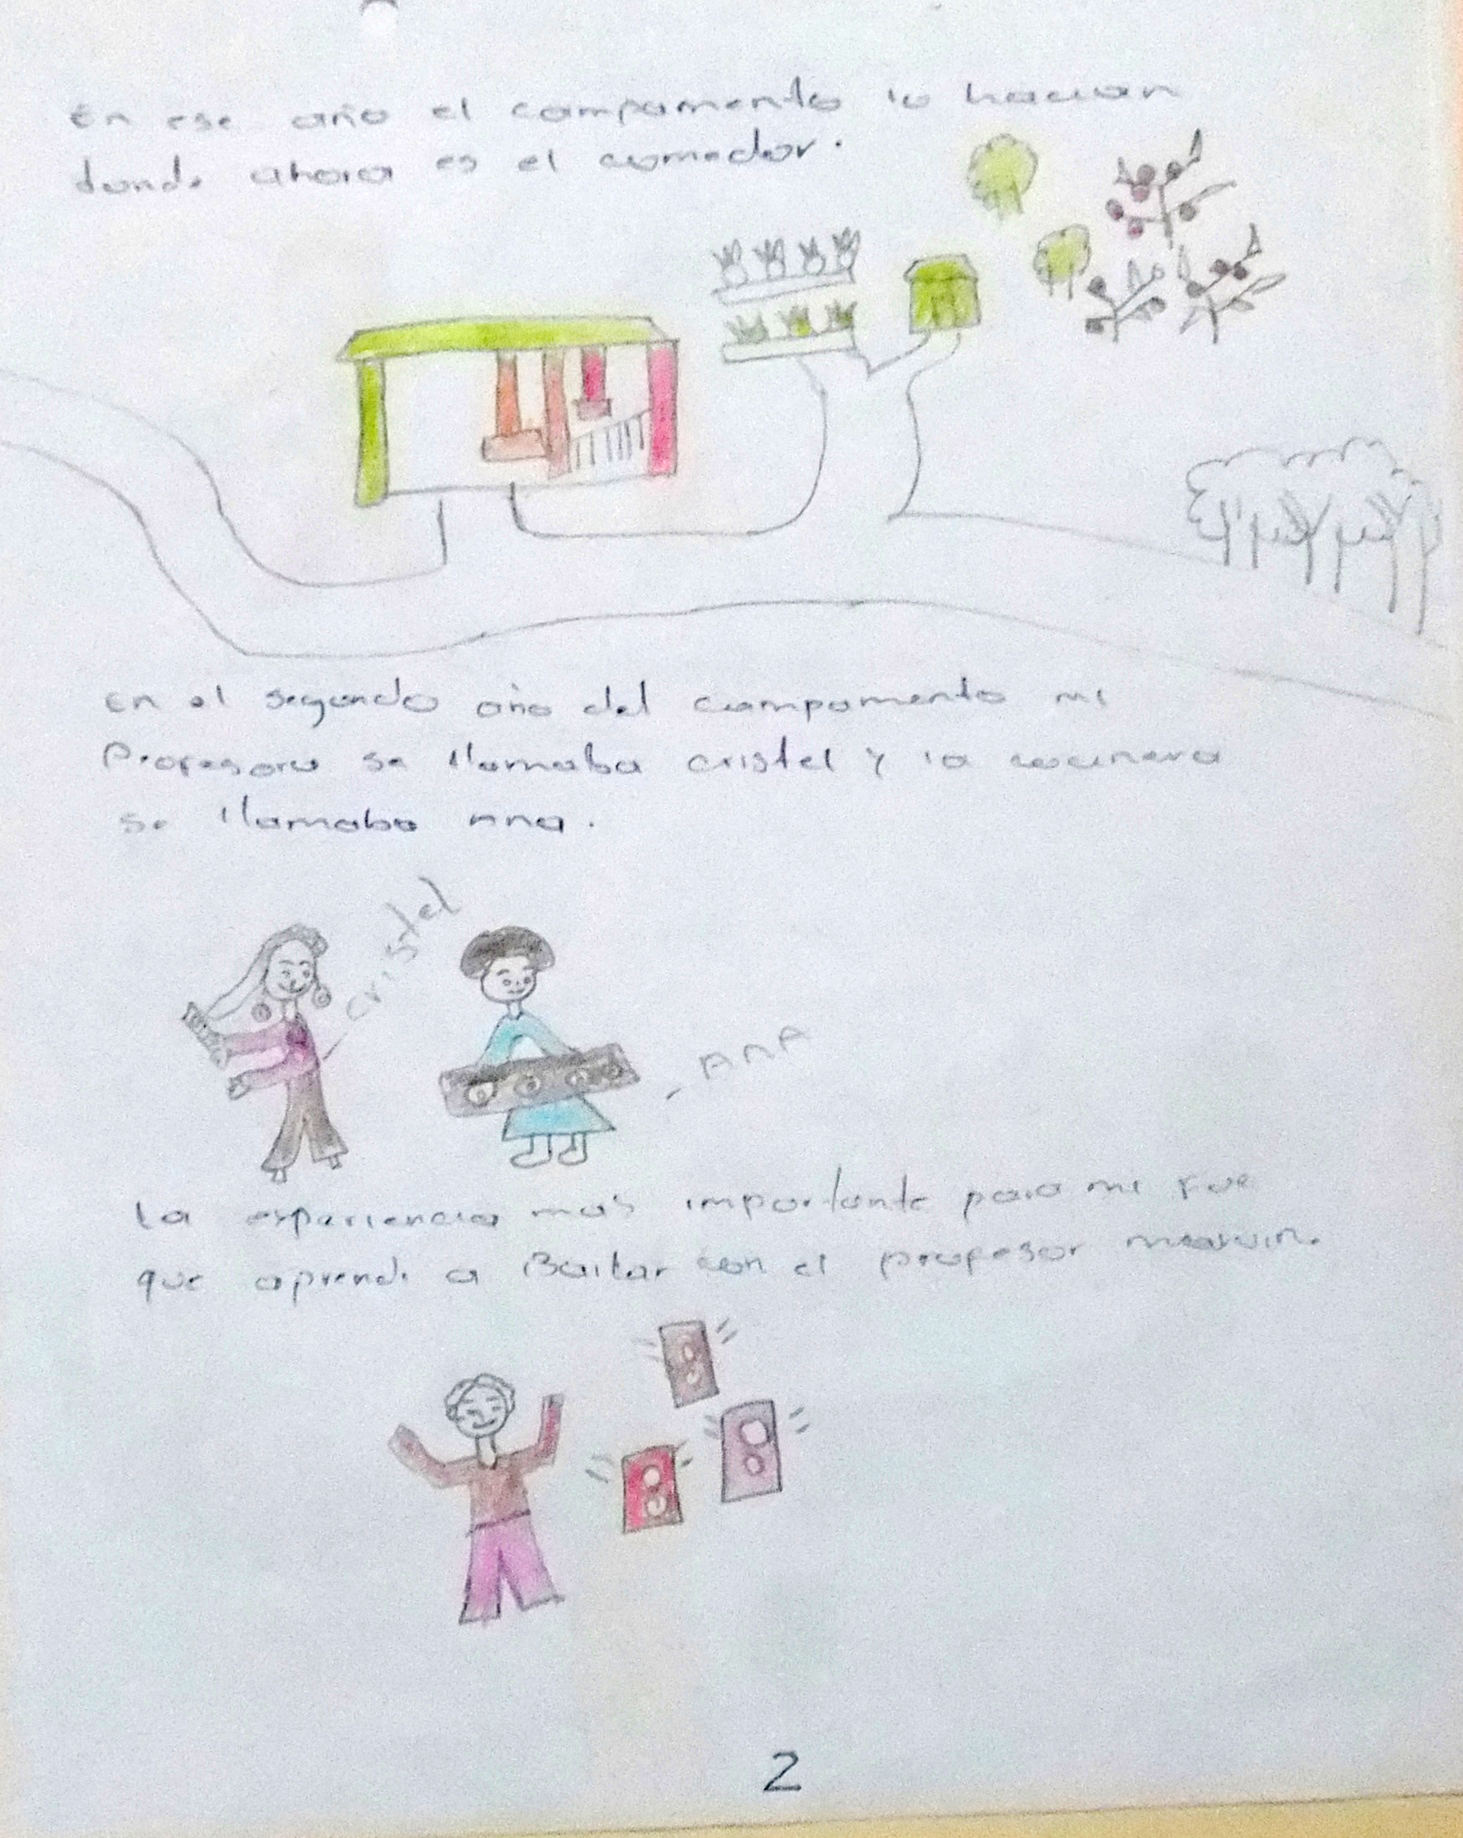 En ese año el campamento lo hacian
donde ahora es el comedor.
En el segundo año del campamento mi
Profesora se llamaba cristel y la cocinera
se llamaba Ana.
cristel
- AnA
La experiencia mas importante para mi fue
que aprendi a Bailar con el profesor marvin.
2